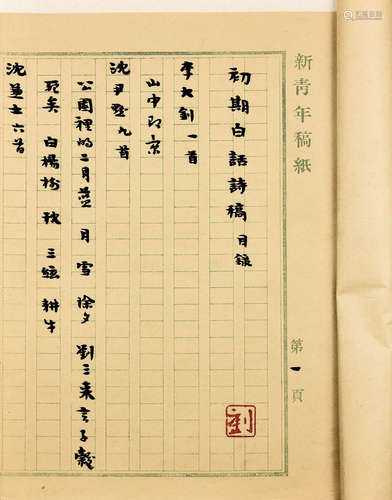 新青年稿紙
第一頁
初期白話詩稿目錄
李大釗一首
山中即景
沈尹默九首
公園裡的二月蓝 月 雪 除夕 劉三来言子穀
死矣 白楊樹 秋 三絃 耕牛
沈兼士六首
劉